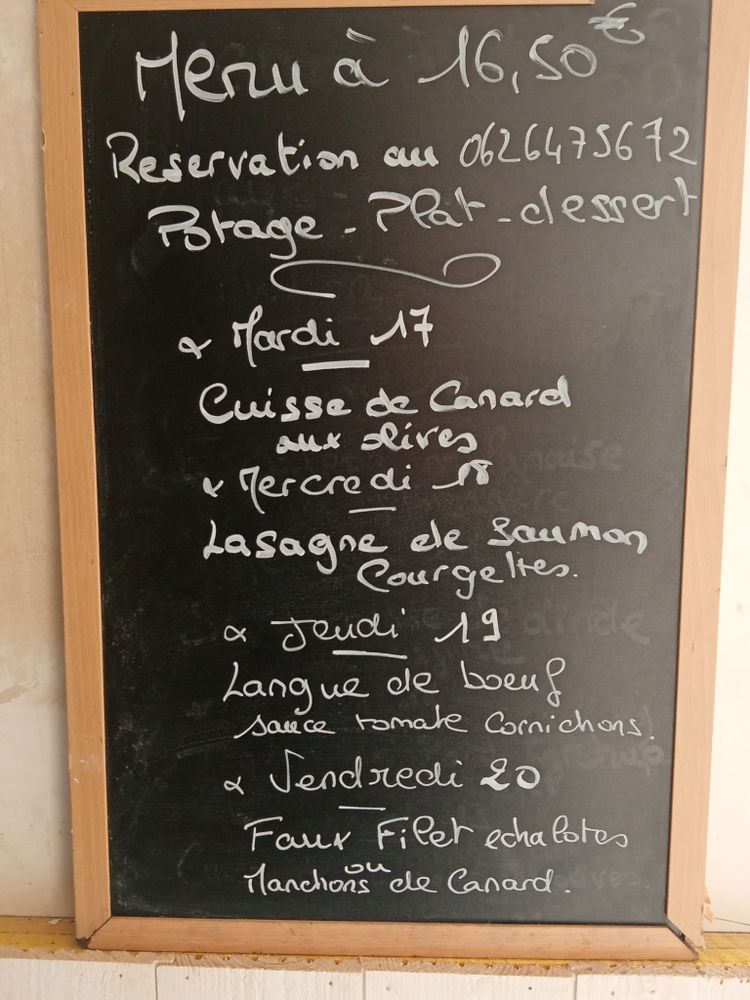 Menu à 16,50€
Reservation au 0626475672
Potage - Plat - dessert
Mardi 17
Cuisse de Canard
aux olives
Mercredi 18
Lasagne de Saumon
Courgettes.
Jeudi 19
Langue de boeuf
sauce tomate Cornichons.
Vendredi 20
Faux Filet echalotes
ou
Manchons de Canard.